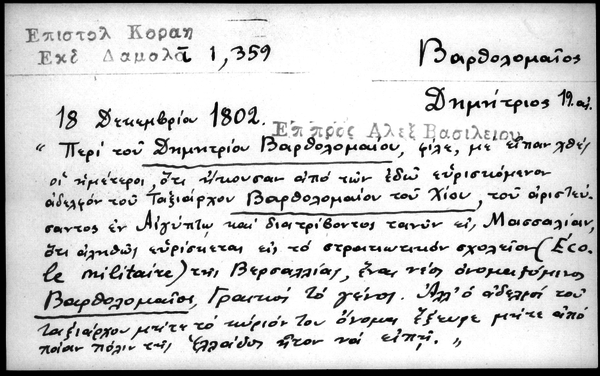 Επιστολ Κοραη
Εκδ Δαμαλᾶ 1,359
Βαρθολομαῖος
Δημήτριος 19 αἰ.
18 Δεκεμβρία 1802.
Επ προς Αλεξ Βασιλειου
"Περί τοῦ Δημητρία Βαρθολομαίου, φίλε, με εἶπαν χθὲς
οἱ ἡμέτεροι, ὅτι ἤκουσαν ἀπό τῶν ἐδῶ εὑρισκόμενον
ἀδελφόν τοῦ Ταξιάρχου Βαρθολομαίου τοῦ Χίου, τοῦ ἀριστεύ-
σαντος ἐν Αἰγύπτῳ καί διατρίβοντος τανῦν εἰς Μασσαλίαν,
ὅτι ἀληθῶς εὑρίσκεται εἰς τό στρατιωτικόν σχολεῖον (Éco-
le militaire) τῆς Βερσαλλίας, ἕνας νέος ὀνομαζόμενος
Βαρθολομαῖος, Γραικός τό γένος. Ἀλλ' ὁ ἀδελφός τοῦ
ταξιάρχου μήτε τό κύριόν του ὄνομα ἔξευρε μήτε ἀπό
ποίαν πόλιν τῆς Ἑλλάδος ἦτον νά εἰπῇ. "